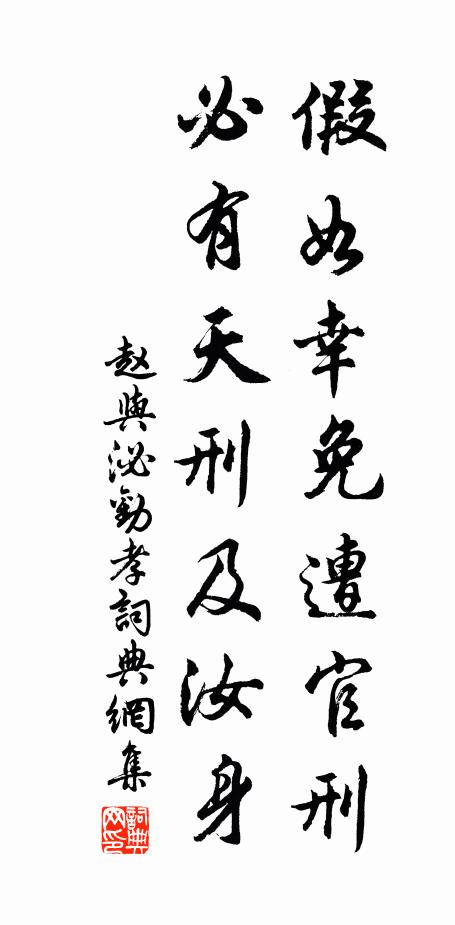 假如幸免遭官刑
必有天刑及汝身
赵與泌勸孝詞典網集
詞典
网印